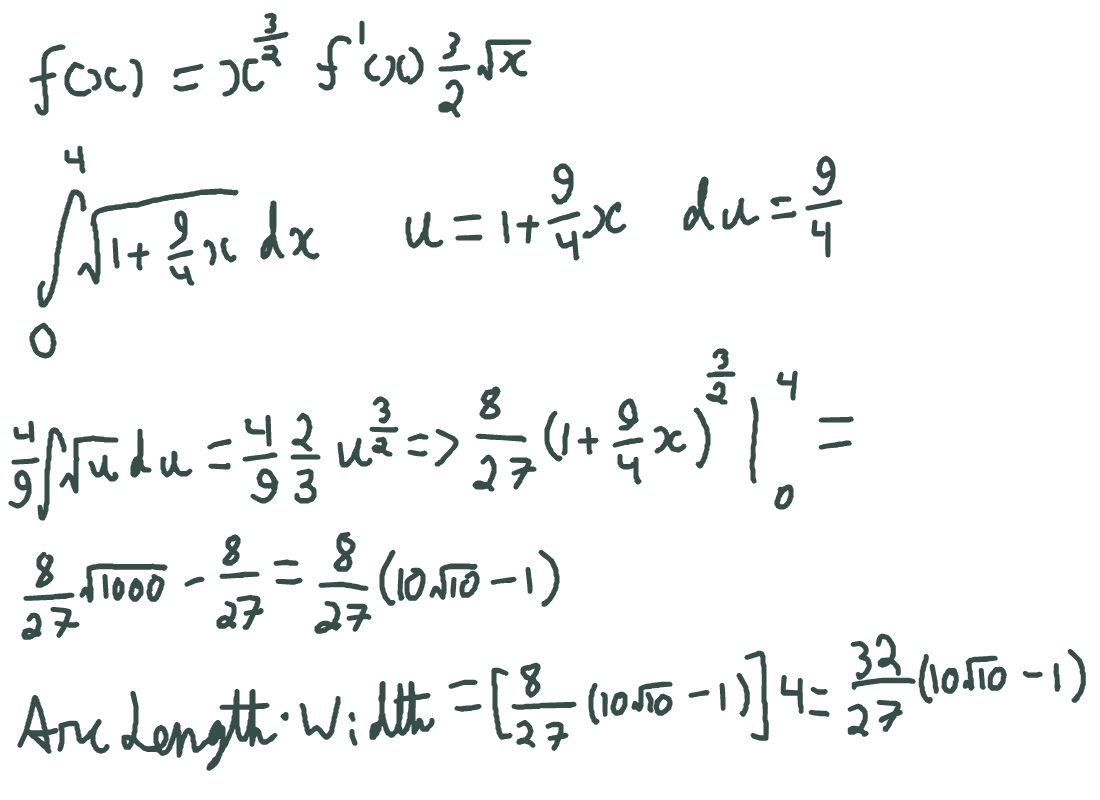 f(x) = x^{3/2} f'(x) 3/2 √x
∫_0^4 √(1 + 9/4 x) dx u = 1 + 9/4 x du = 9/4
4/9 ∫ √u du = 4/9 2/3 u^{3/2} => 8/27 (1 + 9/4 x)^{3/2} |_0^4 =
8/27 √1000 - 8/27 = 8/27 (10√10 - 1)
Arc Length · Width = [8/27 (10√10 - 1)] 4 = 32/27 (10√10 - 1)